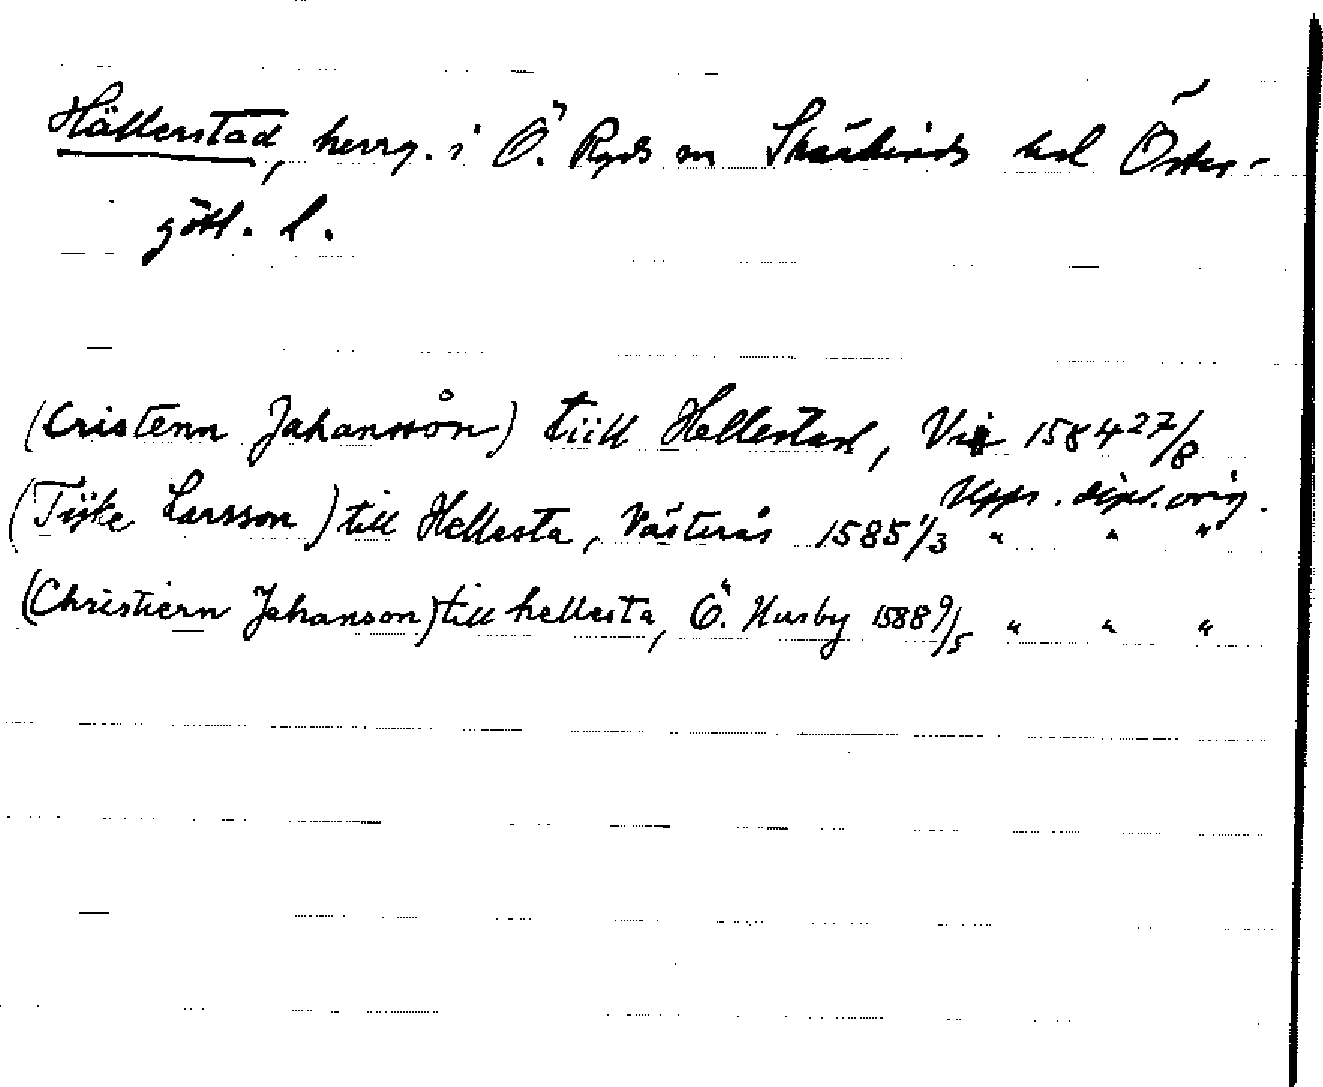 Hällerstad, herrg. i Ö. Ryds sn Skärkinds hd Öster-
götl. l.
(Cristenn Jahanssån) tiill Hellestad, Vi 1584 27/8
Upps. dipl. orig.
(Tijke Larsson) till Hellesta, Västerås 1585 1/3 " " "
(Christiern Johanson) till hellesta, Ö. Husby 1588 9/5 " " "